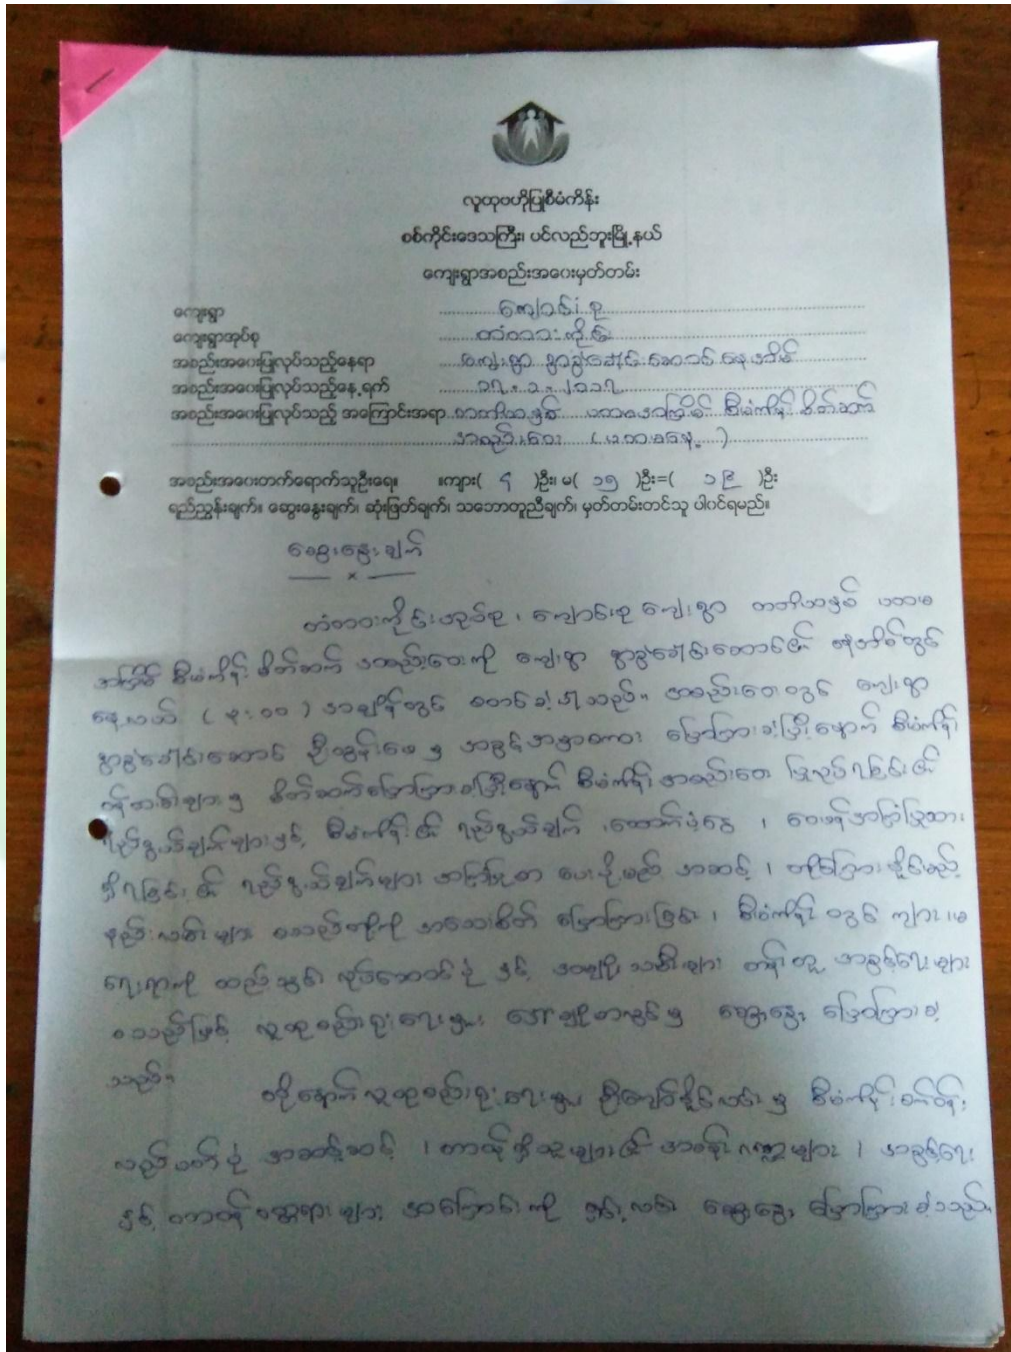 လူထုဗဟိုပြုစီမံကိန်း
စစ်ကိုင်းဒေသကြီး၊ ပင်လည်ဘူးမြို့နယ်
ကျေးရွာအစည်းအဝေးမှတ်တမ်း
ကျေးရွာ ကျောင်းစု
ကျေးရွာအုပ်စု တံတားကိုင်း
အစည်းအဝေးပြုလုပ်သည့်နေရာ ကျေးရွာ ရွာခွဲခေါင်းဆောင် နေအိမ်
အစည်းအဝေးပြုလုပ်သည့်နေ့ရက် ၁၇.၁.၂၀၁၇
အစည်းအဝေးပြုလုပ်သည့် အကြောင်းအရာ တတိယနှစ် ပထမအကြိမ် စီမံကိန်း မိတ်ဆက်
အစည်းအဝေး
အစည်းအဝေးတက်ရောက်သူဦးရေ။ ။ကျား( ၄ )ဦး၊ မ( ၁၅ )ဦး=( ၁၉ )ဦး
ရည်ညွှန်းချက်။ ဆွေးနွေးချက်၊ ဆုံးဖြတ်ချက်၊ သဘောတူညီချက်၊ မှတ်တမ်းတင်သူ ပါဝင်ရမည်။
ဆွေးနွေးချက်
တံတားကိုင်းအုပ်စု ၊ ကျောင်းစု ကျေးရွာ တတိယနှစ် ပထမ
အကြိမ် စီမံကိန်း မိတ်ဆက် အစည်းအဝေးကို ကျေးရွာ ရွာခွဲခေါင်းဆောင်၏ နေအိမ်တွင်
နေ့လယ် အချိန်တွင် စတင်ခဲ့ပါသည်။ အစည်းအဝေးတွင် ကျေးရွာ
ရွာခွဲခေါင်းဆောင် ဦးထွန်းဖေ မှ အဖွင့်အမှာစကား ပြောကြားခဲ့ပြီးနောက် စီမံကိန်း
ဝန်ထမ်းများ မှ မိတ်ဆက်ပြောကြားခဲ့ပြီးနောက် စီမံကိန်း အစည်းအဝေး ပြုလုပ်ရခြင်း၏
ရည်ရွယ်ချက်များနှင့် စီမံကိန်း၏ ရည်ရွယ်ချက် ၊ထောက်ပံ့ငွေ ၊ ဝေဖန်အကြံပြုစာ
ရှိရခြင်း၏ ရည်ရွယ်ချက်များ အကြံပြုစာ ပေးပို့မည့် အဆင့် ၊ တိုင်ကြားနိုင်မည့်
နည်းလမ်းများ စသည်တို့ကို အသေးစိတ် ပြောကြားခြင်း ၊ စီမံကိန်း တွင် ကျား ၊မ
ရေးရာကို ထည့်သွင်း လုပ်ဆောင်ပုံ နှင့် အမျိုးသမီးများ တန်းတူ အခွင့်ရေးများ
စသည်ဖြင့် လူထုစည်းရုံးရေးမှူး မှ ဆွေးနွေး ပြောကြားခဲ့
သည်။
ထို့နောက် လူထုစည်းရုံးရေးမှူး ဦးကျော်နိုင်လင်း မှ စီမံကိန်းစက်ဝန်း
လည်ပတ်ပုံ အဆင့်ဆင့် ၊ တာဝန်ရှိသူများ၏ အခန်းကဏ္ဍများ ၊ အခွင့်ရေး
နှင့် တာဝန် ဝတ္တရားများ အကြောင်းကို ရှင်းလင်း ဆွေးနွေး ပြောကြားခဲ့သည်။